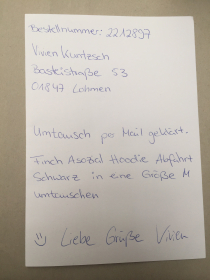 Bestellnummer: 2212897
Vivien Kuntzsch
Basteistraße 53
01847 Lohmen
Umtausch per Mail geklärt.
Finch Asozial Hoodie Abfahrt
Schwarz in eine Größe M
umtauschen
:) Liebe Grüße Vivien